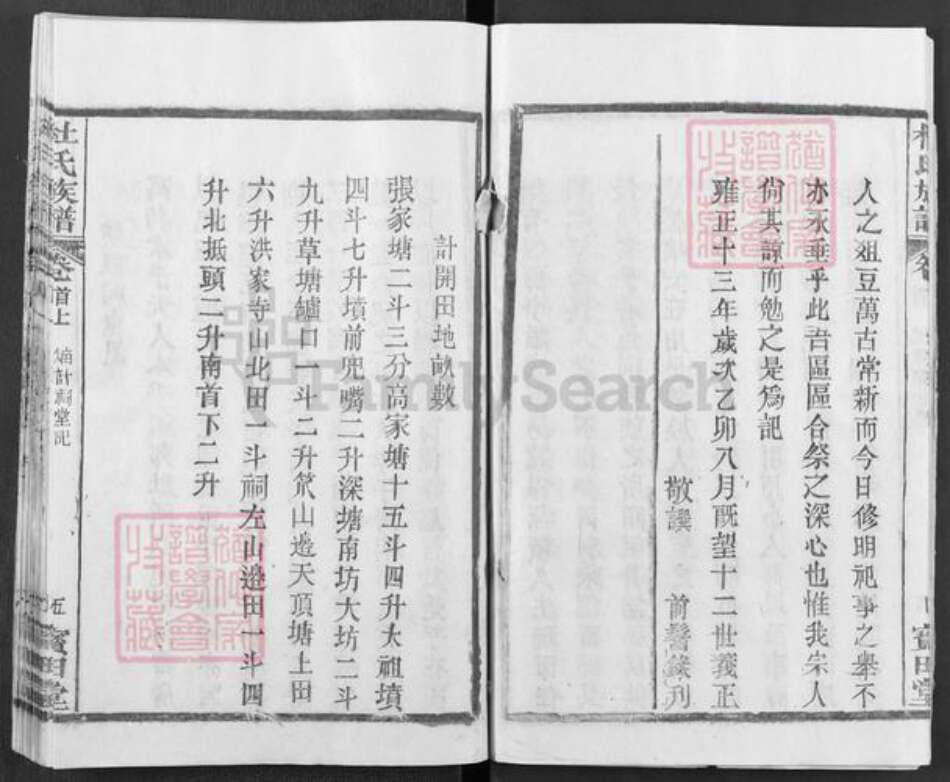 人之俎豆萬古常新而今日修明祀事之舉不
亦永垂乎此吾區區合祭之深心也惟我宗人
尙其諒而勉之是爲記
雍正十三年歲次乙卯八月既望十二世義正
敬譔 前謄錄刋
杜氏族譜 卷首上 嫡計祠堂記 五 寶田堂
計開田地畝數
張家塘二斗三分高家塘十五斗四升太祖墳
四斗七升墳前兜嘴二升深塘南坊大坊二斗
九升草塘罏口一斗二升 山邉天頂塘上田
六升洪家寺山北田一斗祠左山邉田一斗四
升北抵頭二升南首下二升
FamilySearch